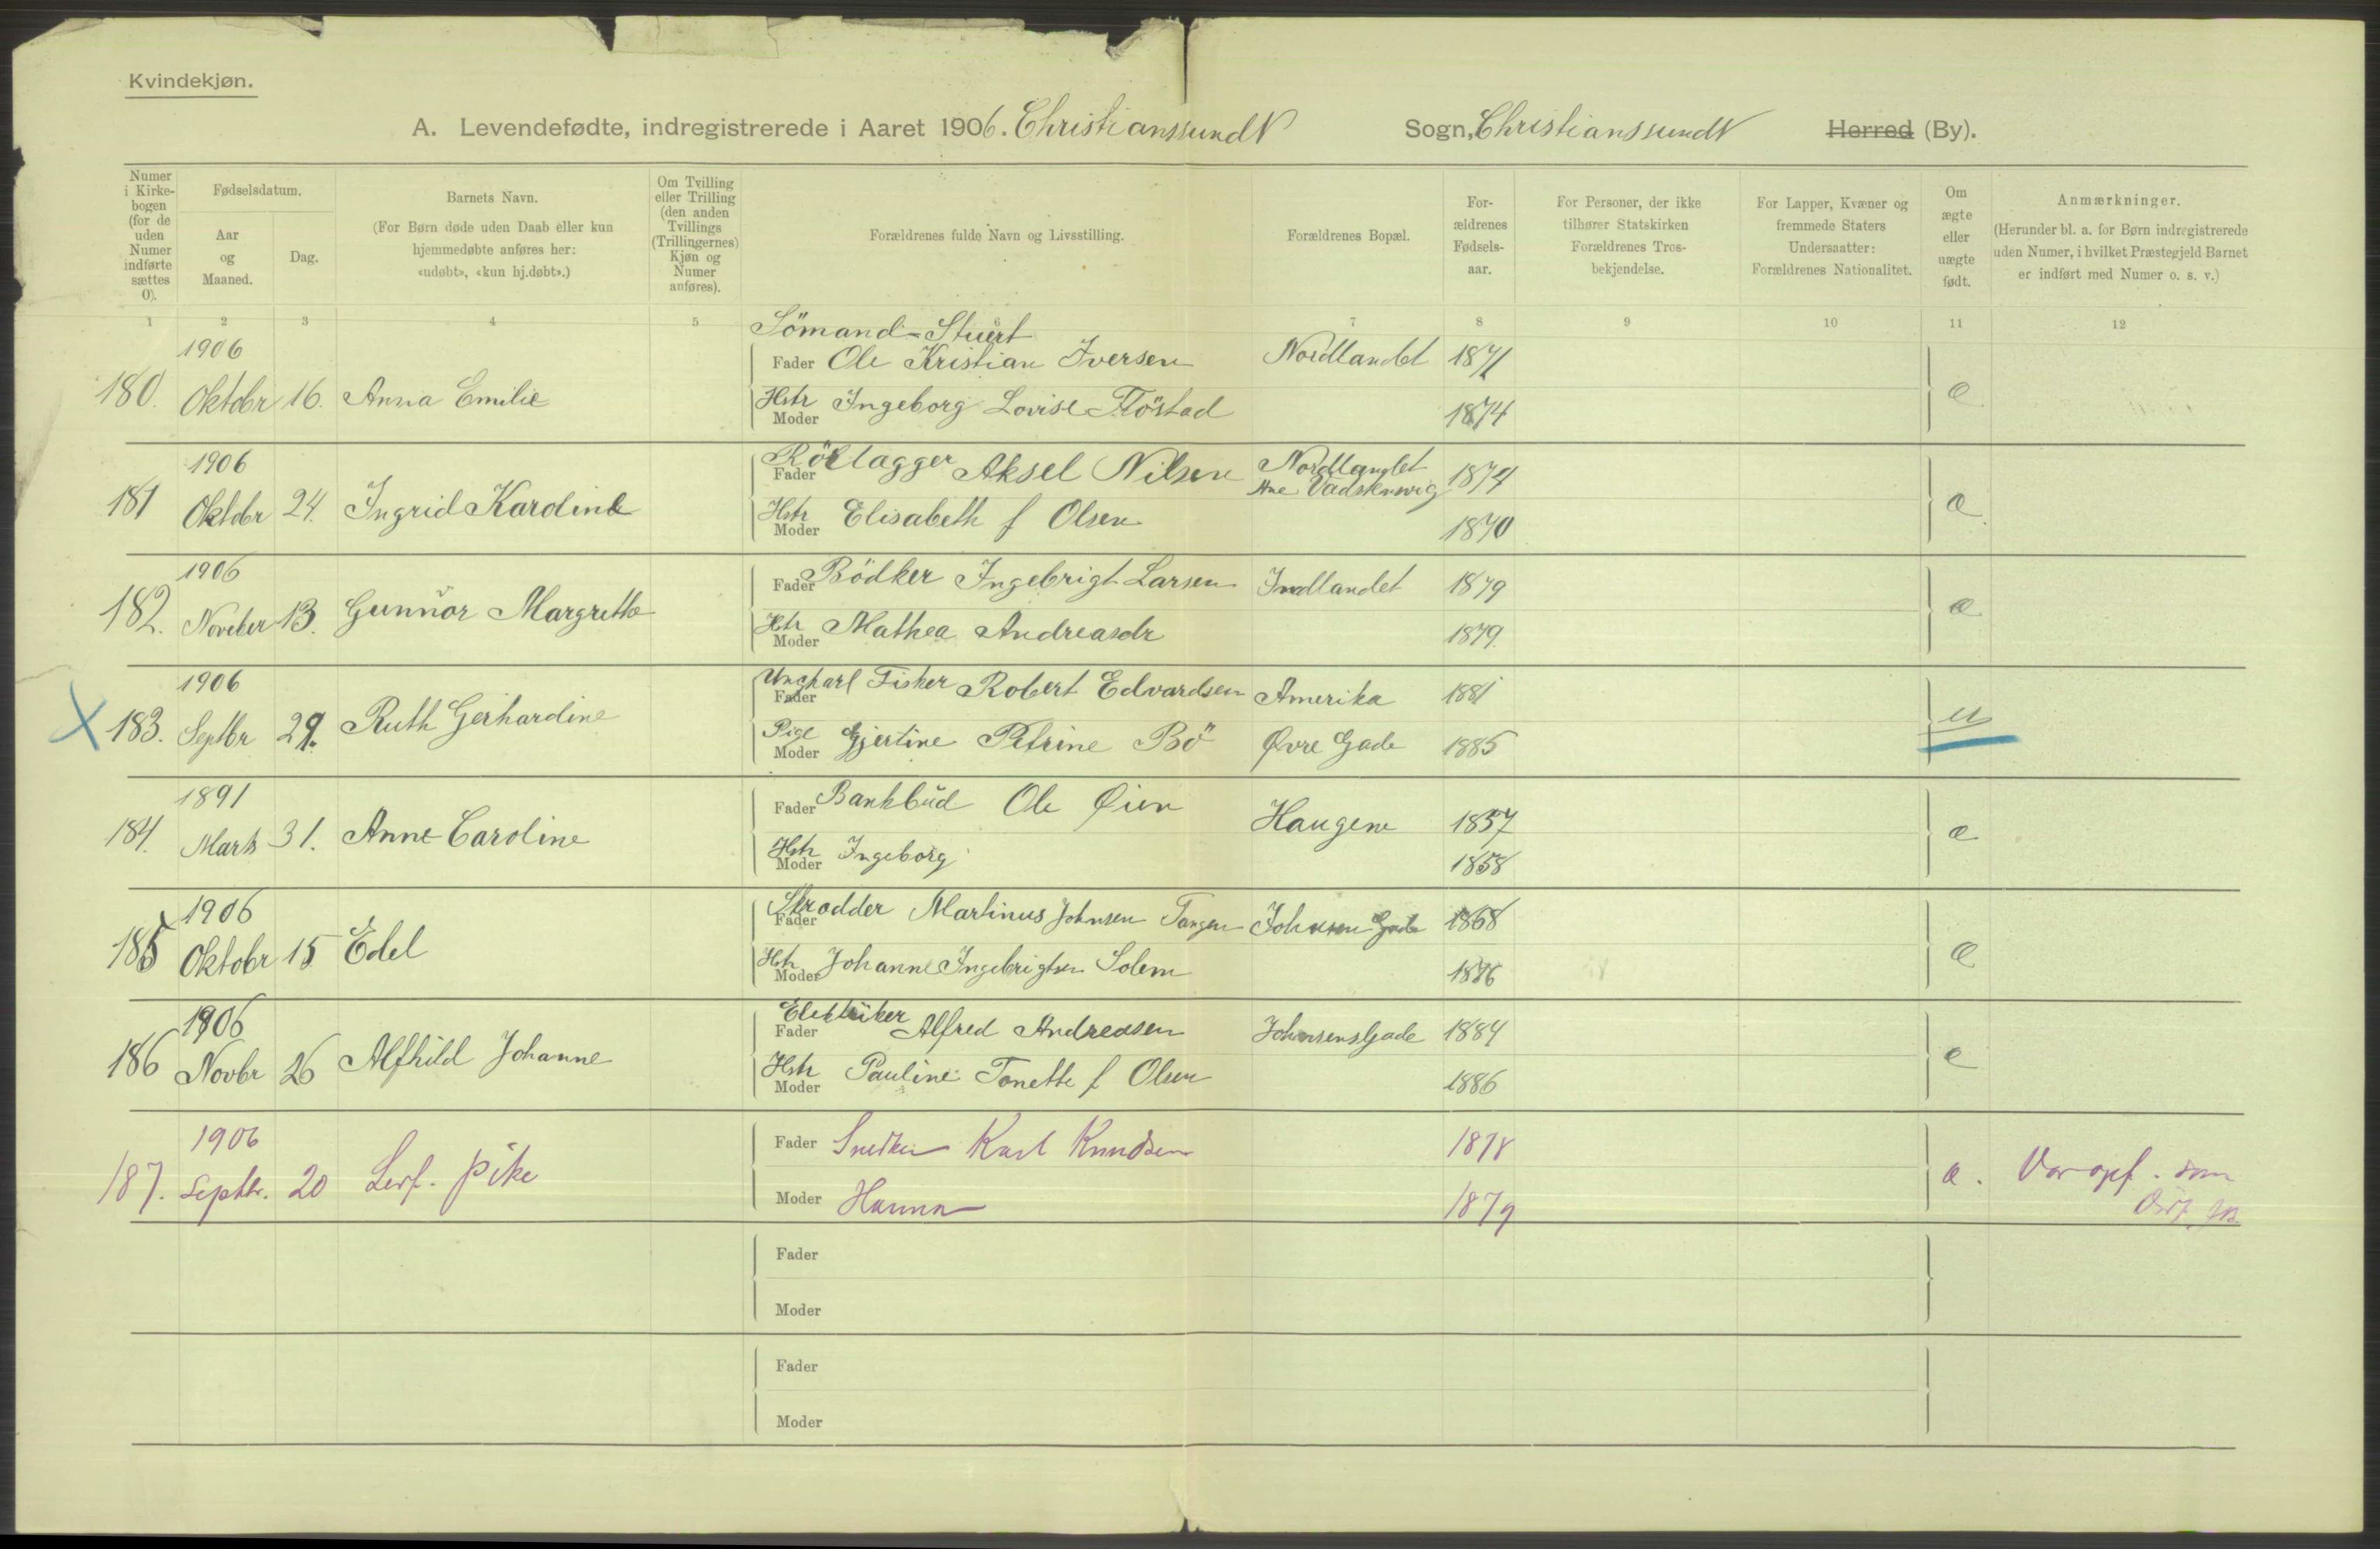 Kvindekjøn.
A. Levendefødte, indregistrerede i Aaret 1906. Christianssund N Sogn, Christianssund N Herred (By).
Numer i Kirkebogen (for de uden Numer indførte sættes 0).
Fødselsdatum.
Aar og Maaned.
Dag.
Barnets Navn.
(For Børn døde uden Daab eller kun hjemmedøbte anføres her: «udøbt», «kun hj.døbt».)
Om Tvilling eller Trilling (den anden Tvillings (Trillingernes) Kjøn og Numer anføres).
Forældrenes fulde Navn og Livsstilling.
Forældrenes Bopæl.
Forældrenes Fødselsaar.
For Personer, der ikke tilhører Statskirken Forældrenes Trosbekjendelse.
For Lapper, Kvæner og fremmede Staters Undersaatter: Forældrenes Nationalitet.
Om ægte eller uægte født.
Anmærkninger.
(Herunder bl. a. for Børn indregistrerede uden Numer, i hvilket Præstegjeld Barnet er indført med Numer o. s. v.)
1 2 3 4 5 6 7 8 9 10 11 12
Sömand-Stuert
1906
Fader Ole Kristian Iversen Nordlandet 1871
180. Oktobr 16. Anna Emilie æ
Hstr Moder Ingeborg Lovise Flöstad 1874
1906
Fader Aksel Nilsen Nordlandet 1874
181 Oktobr 24. Ingrid Karoline æ
Hstr Moder Elisabeth f Olsen 1870
1906
Fader Bödker Ingebrigt Larsen Indlandet 1879
182. Noveber 13. Gunnor Margrethe æ
Hstr Moder Mathea Andreasdr 1879
1906
Ungkarl Fisker Fader Robert Edvardsen Amerika 1881
X 183. Septbr 29. Ruth Gerhardine u
Pige Moder Gjertine Petrine Bö Øvre Gade 1885
1891
Fader Bankbud Ole Øien Haugene 1857
184. Marts 31. Anne Caroline æ
Hstr Moder Ingeborg 1858
1906
Skrædder Fader Martinus Johnsen Tangen Johnsen Gade 1868
185 Oktobr 15 Edel æ
Hstr Moder Johanne Ingebrigtsen Solem 1876
1906
Elektriker Fader Alfred Andreasen JohnsensGade 1884
186 Novbr 26 Alfhild Johanne æ
Hstr Moder Pauline Tonette f Olsen 1886
1906
Fader Snedker Karl Knudsen 1878
187. Septbr. 20 Levf. pike æ. Var opf. som
Moder Hanna 1879
Fader
Moder
Fader
Moder